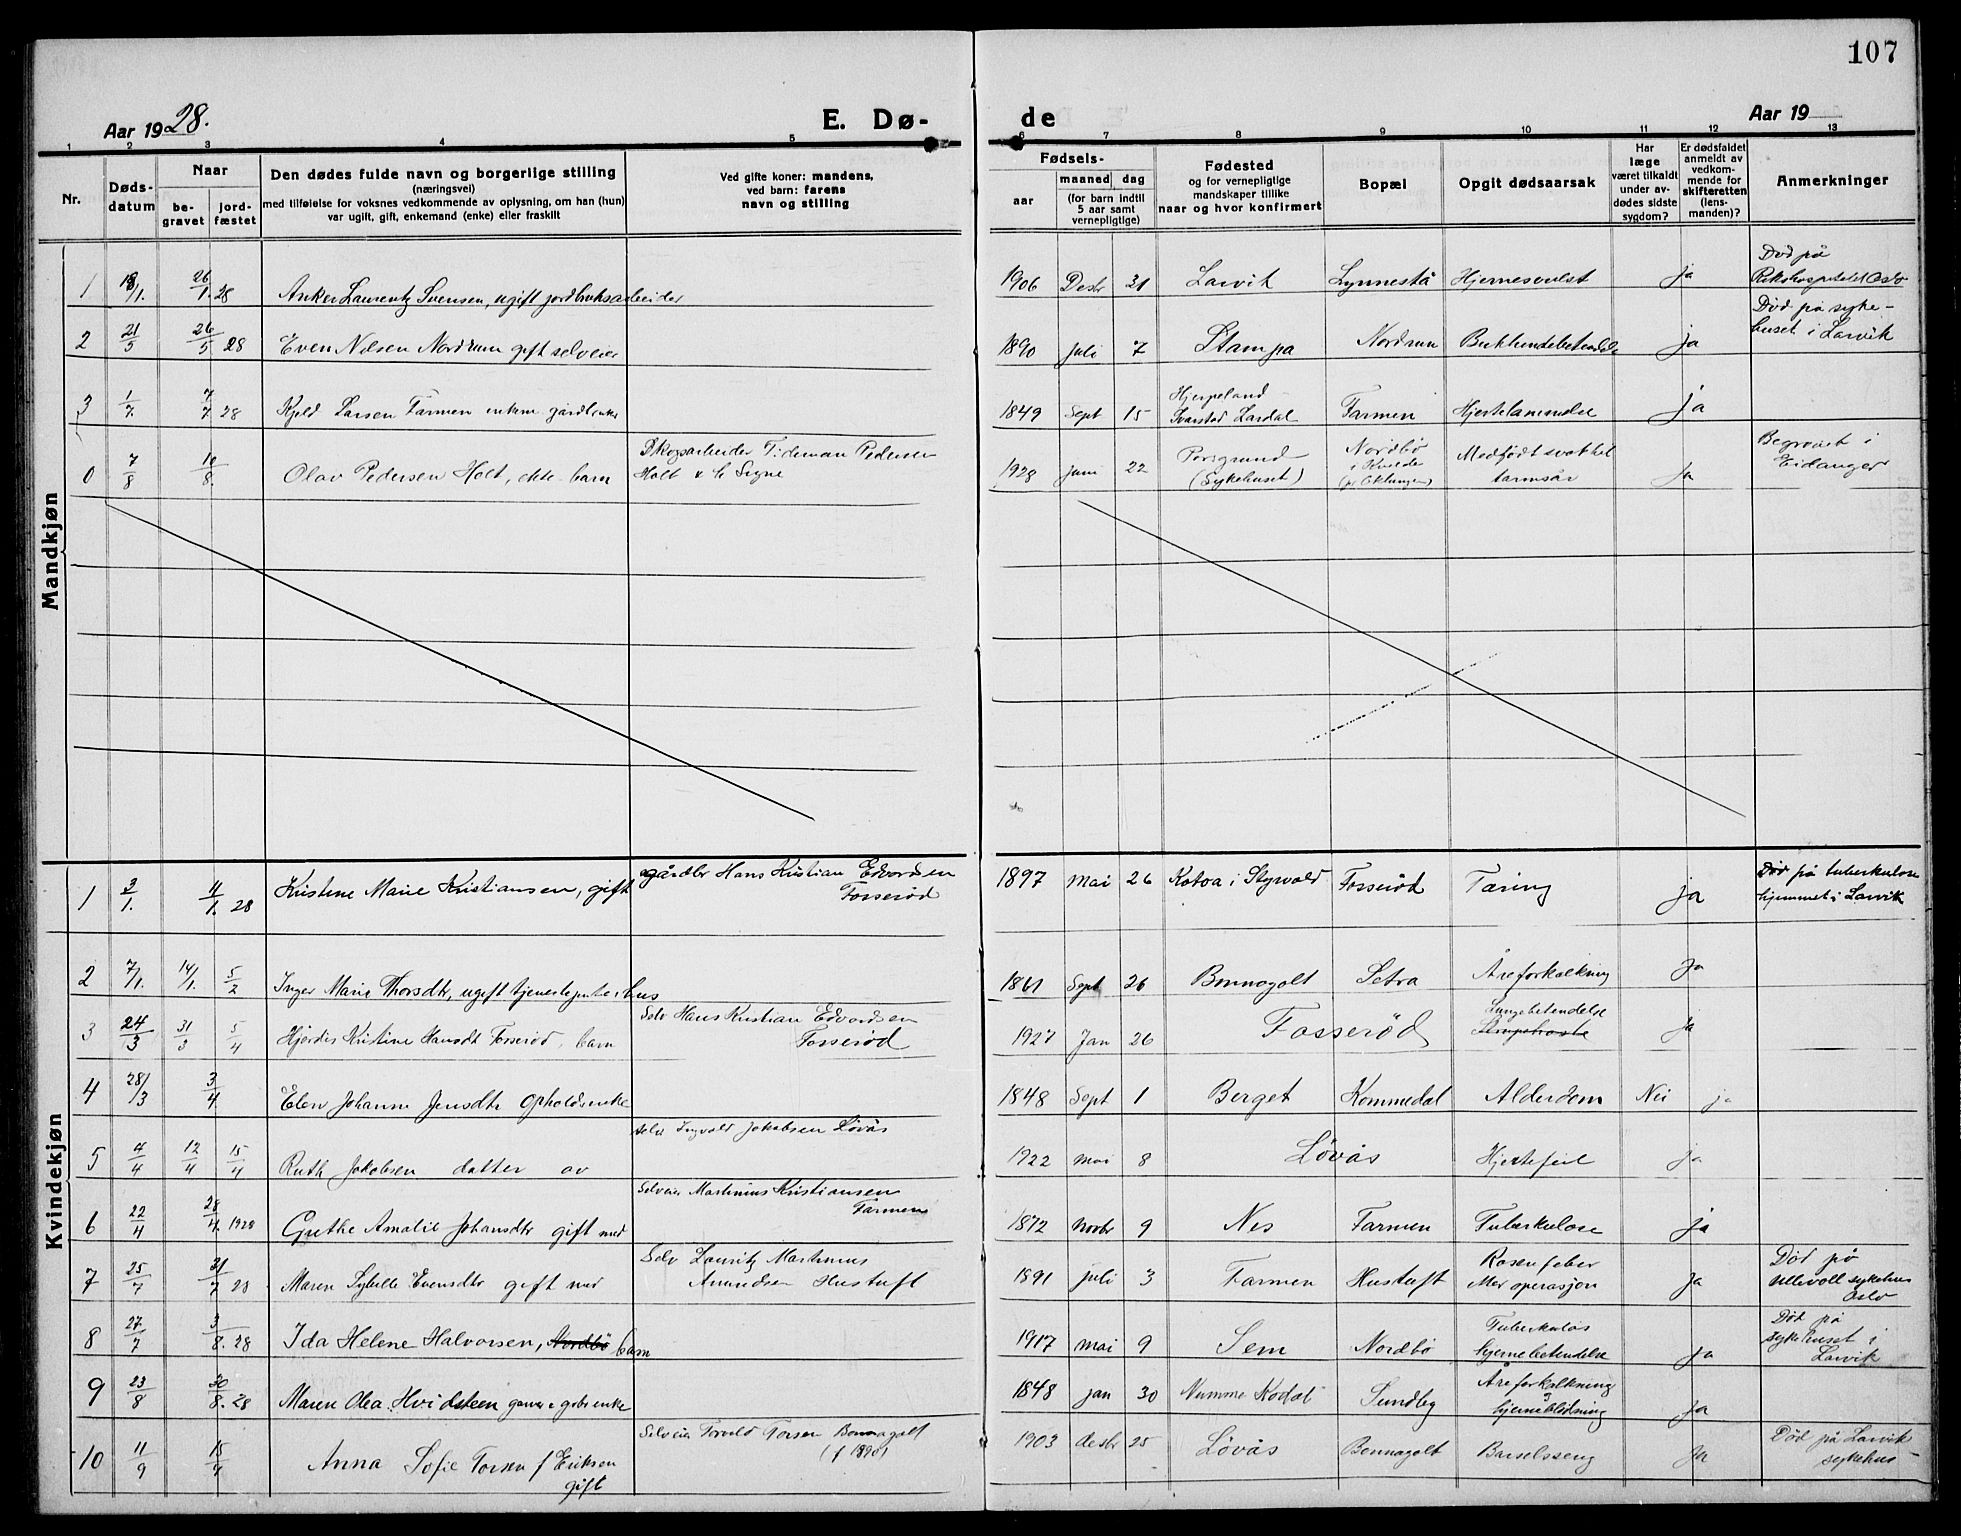 107
Aar 1928.
E. Dø-
de
Aar 19
1 2 3 4 5 6 7 8 9 10 11 12 13
Nr.
Døds-
datum
Naar
be-
gravet
jord-
fæstet
Den dødes fulde navn og borgerlige stilling
(næringsvei)
med tilføielse for voksnes vedkommende av oplysning, om han (hun)
var ugift, gift, enkemand (enke) eller fraskilt
Ved gifte koner: mandens,
ved barn: farens
navn og stilling
Fødsels-
aar
maaned dag
(for barn indtil
5 aar samt
vernepligtige)
Fødested
og for vernepligtige
mandskaper tillike
naar og hvor konfirmert
Bopæl
Opgit dødsaarsak
Har
læge
været tilkaldt
under av-
dødes sidste
sygdom?
Er dødsfaldet
anmeldt av
vedkom-
mende for
skifteretten
(lens-
manden)?
Anmerkninger
Mandkjøn
1 18/1. 26/1. 28 Anker Laurentz Svensen, ugift jordbruksarbeider 1906 Desbr 31 Larvik Lynnestå Hjernesvulst ja
Død på
Rikshospitalet Oslo
2 21/5 26/5 28 Even Nilsen Nordrum gift selveier 1890 juli 7 Stampa Nordrum ja
Død på syke-
huset i Larvik
3 1/7. 7/7. 28 Kjeld Larsen Farmen enkem 1849 Sept 15
Svarstad Lardal Farmen Hjertelammelse ja
0 7/8 10/8. Olav Pedersen Holt, ekte barn
Skogsarbeider Tideman Pedersen
Holt & h Signe
1928 juni 22
Porsgrund
(Sykehuset)
Nordbø
i Kvelde
Medfødt svakhet
tarmsår
ja
Begravet i
Eidanger
Kvindekjøn
1 3/1. 11/1. 28 Kristine Marie Kristiansen, gift
gårdbr Hans Kristian Edvardsen
Fosserød
1897 mai 26 Fosserød Tæring ja
Død på tuberkulose
hjemmet i Larvik
2 7/1. 14/1. 5/2 Inger Marie Thorsdtr, ugift 1861 Sept 26 Bonnagolt Setra Åreforkalkning ja
3 24/3 31/3 5/4 Hjørdis Kristine Hansdt Fosserød, barn
Selv Hans Kristian Edvardsen
Fosserød
1927 Jan 26 Fosserød
Lungebetendelse
ja
4 28/3 3/4. Elen Johanne Jensdtr opholdsenke 1848 Sept 1 Berget Kommedal Alderdom Nei ja
5 4/4 12/4 15/4 Ruth Jakobsen datter av
selv Ingvald Jakobsen Løvås
1922 mai 8 Løvås Hjertefeil ja
6 22/4 28/4. 1928 Grethe Amalie Johansdtr gift med
Selveier Martinius Kristiansen
Farmen
1872 novbr 9 Nes Farmen Tuberkulose ja
7 25/7 31/7 28 Maren Sybille Evensdtr gift med
Selv Lauritz Martinius
Amundsen Hustuft
1891 juli 3 Farmen Hustuft
Rosenfeber
Mor operasjon
ja
Død på
Ullevoll sykehus
Oslo
8 27/7 3/8. 28 Ida Helene Halvorsen, Nordbø barn 1917 mai 9 Sem Nordbø
Tuberkuløs
hjernebetendelse
ja
Død på
sykehuset i
Larvik
9 23/8 30/8. 28 Maren Olea Hvidsteen enke 1848 jan 30 Kodal Sundby
Åreforkalkning
hjerneblødning
ja
10 11/9 15/9 Anna Sofie Torsen f Eriksen
gift
Selveier Torvald Torsen Bonnagolt
(f 1890)
1903 desbr 25 Løvås Bonnagolt Barselsseng ja
Død på Larvik
sykehus